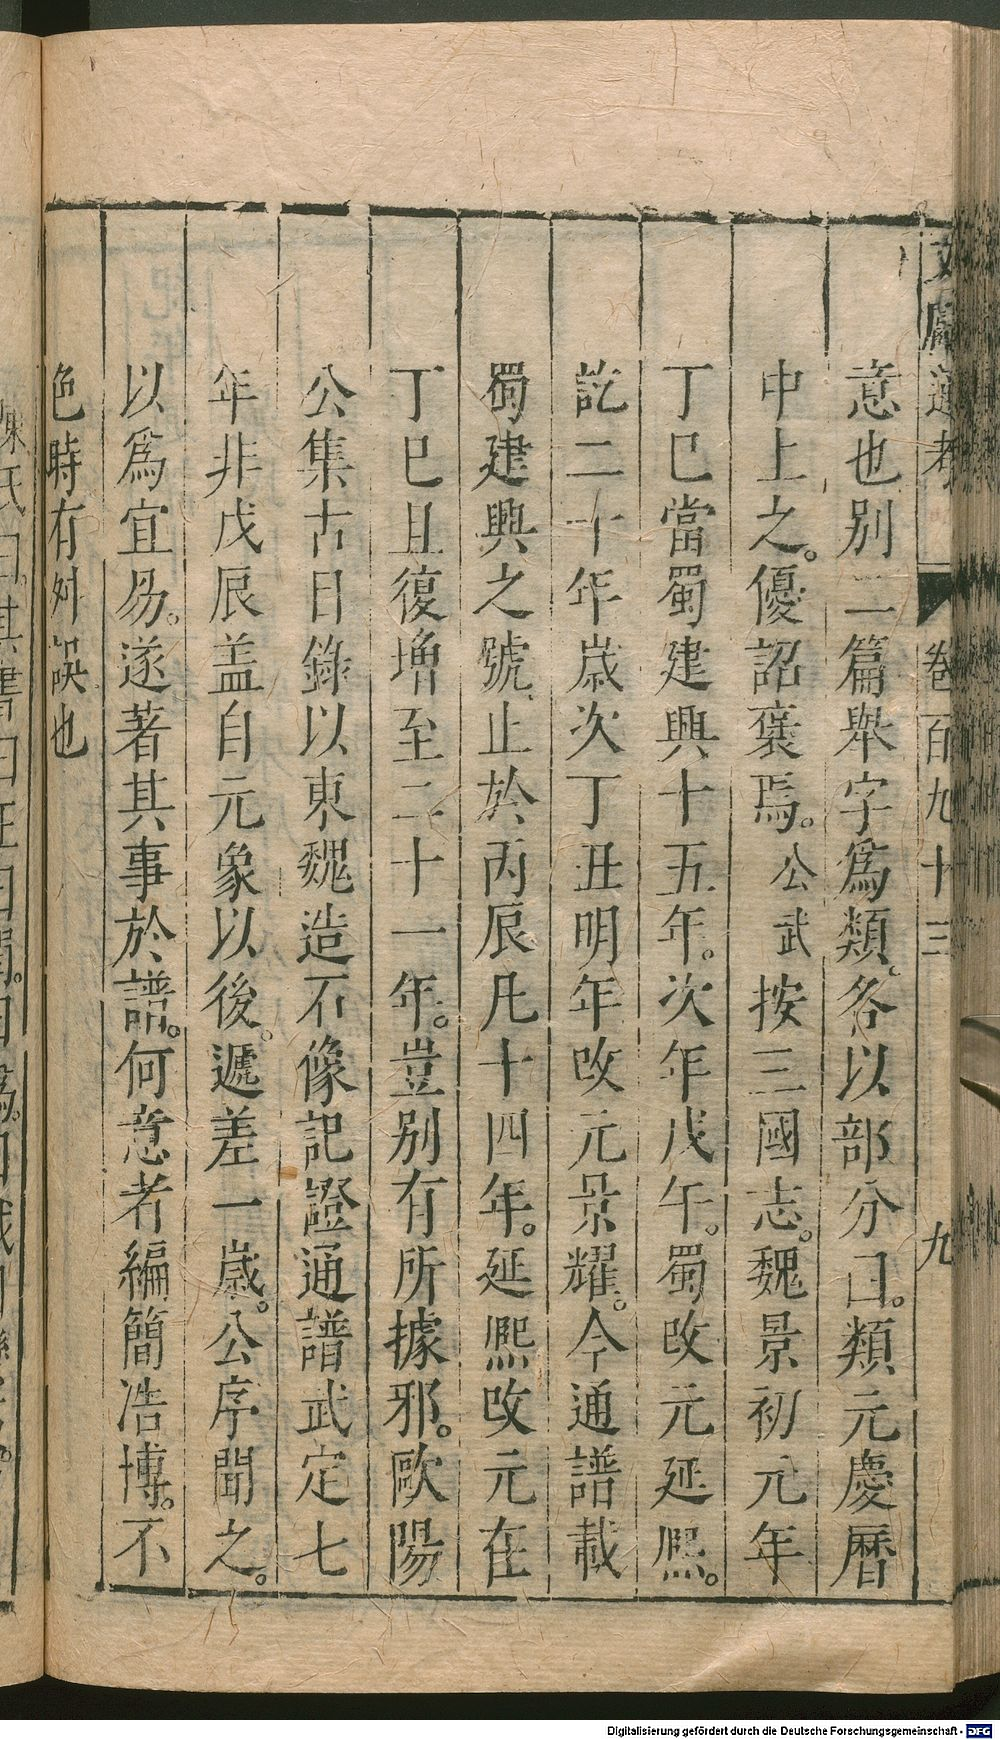 文獻通考 卷百九十三 九
意也别二篇舉字爲類各以部分曰類元慶曆
中上之優詔褒焉公武按三國志魏景初元年
丁巳當蜀建興十五年次年戊午蜀改元延熙
訖二十年歲次丁丑明年改元景耀今通譜載
蜀建興之號止於丙辰凡十四年延熙改元在
丁巳且復增至二十一年豈别有所據邪歐陽
公集古目錄以東魏造石像記證通譜武定七
年非戊辰盖自元象以後遞差一歲公序聞之
以爲宜易遂著其事於譜何意者編簡浩博不
免時有舛誤也
陳氏曰其書曰正曰閏曰僞曰
Digitalisierung gefördert durch die Deutsche Forschungsgemeinschaft - DFG